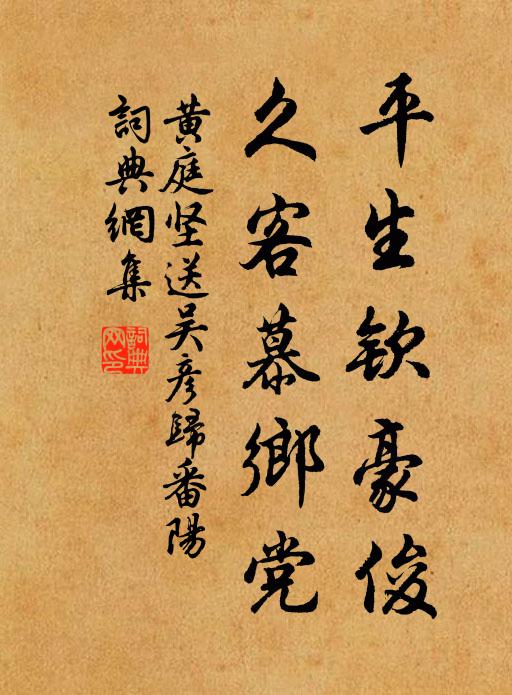 平生钦豪俊
久客慕鄉党
黄庭坚送吴彦歸番陽
詞典網集
詞典網印